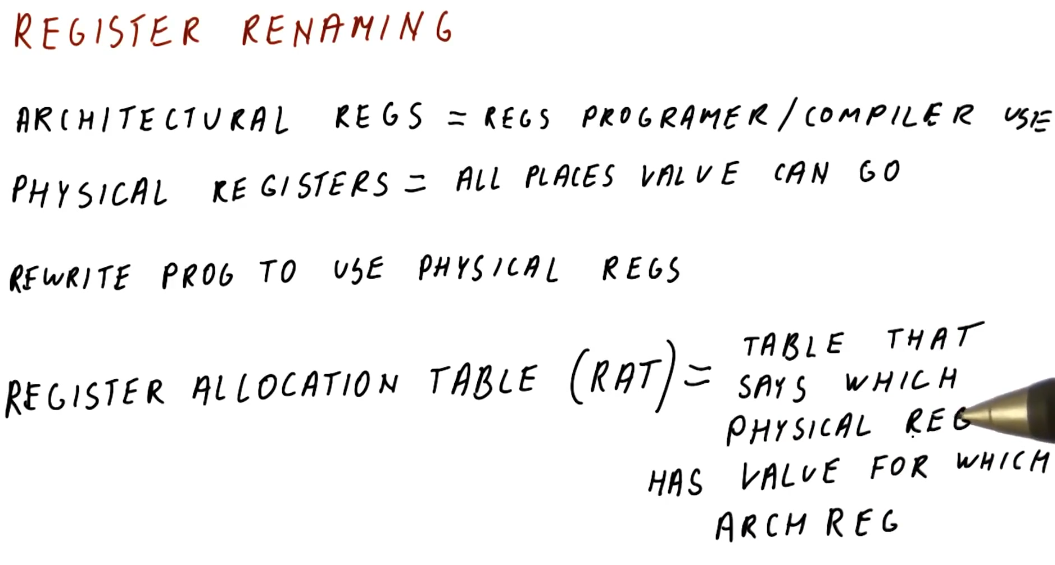 REGISTER RENAMING
ARCHITECTURAL REGS = REGS PROGRAMER/COMPILER USE
PHYSICAL REGISTERS = ALL PLACES VALUE CAN GO
REWRITE PROG TO USE PHYSICAL REGS
REGISTER ALLOCATION TABLE (RAT) = TABLE THAT
SAYS WHICH
PHYSICAL REG
HAS VALUE FOR WHICH
ARCH REG